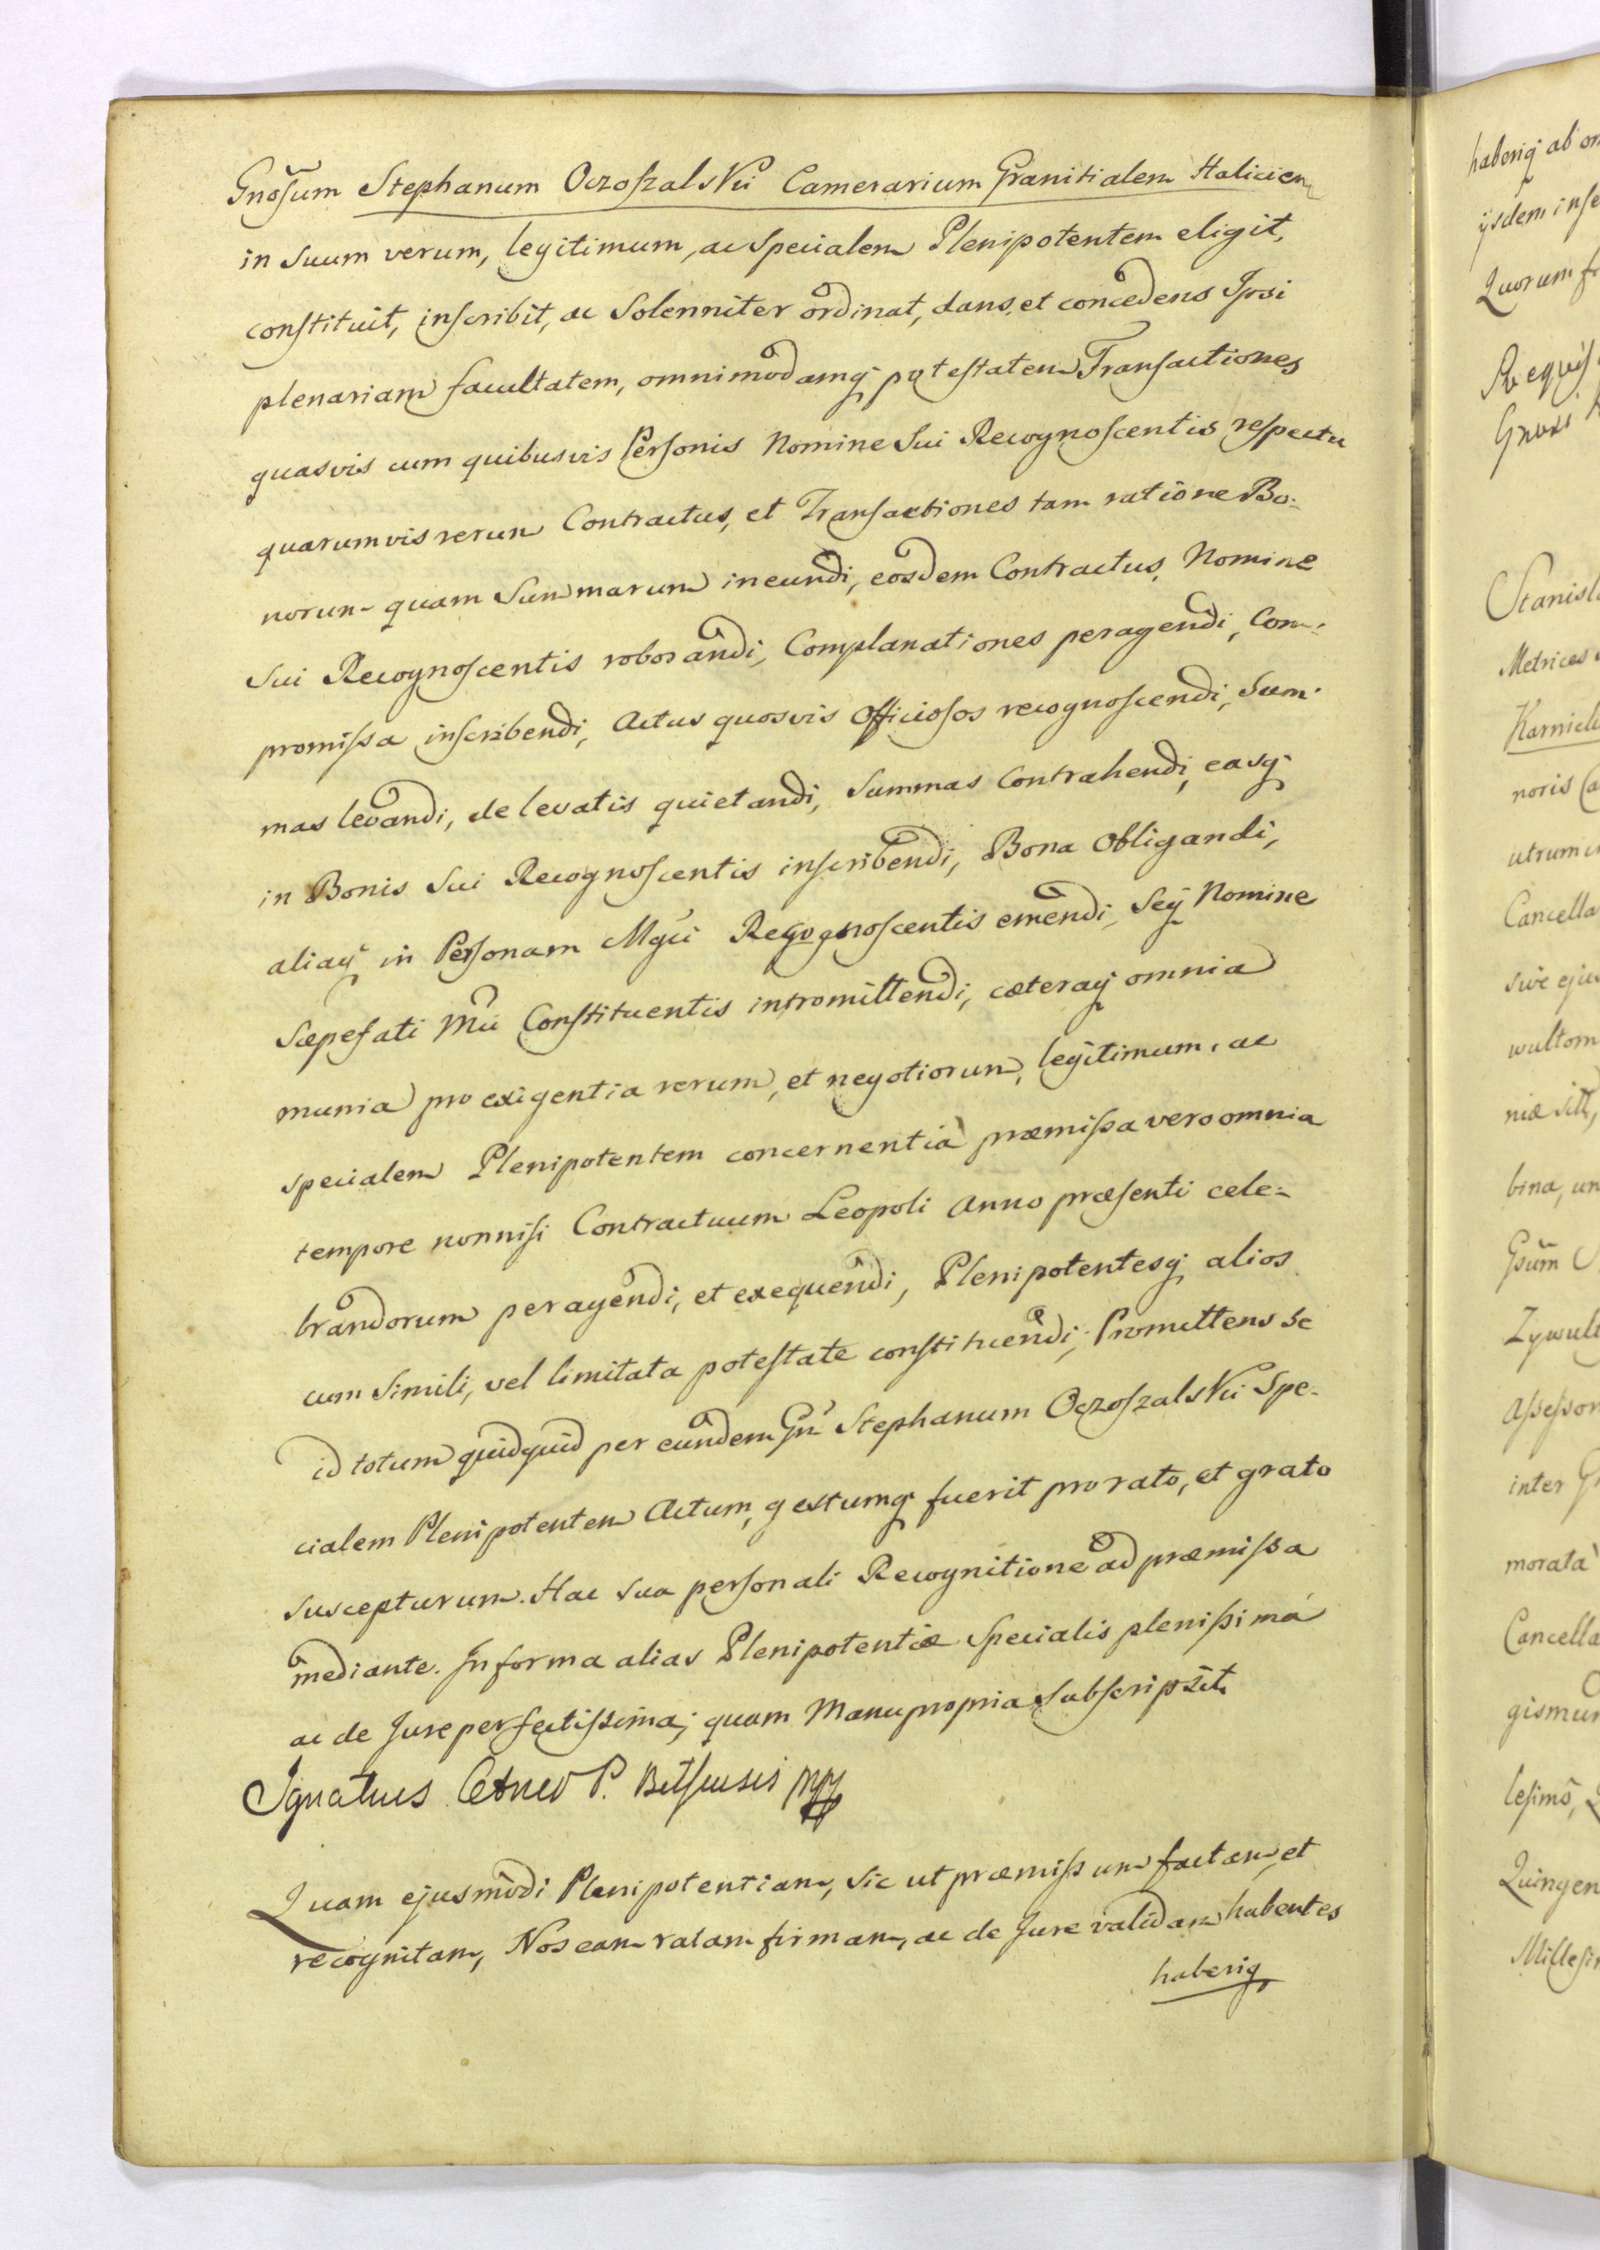 Gnosum Stephanum OczoſzalsKii Camerarium Granitialem Halicien
in suum verum, legitimum, ac Specialem Plenipotentem eligit,
constituit, inscribit, ac Solenniter ordinat, dans, et concedens Ipsi
plenariam facultatem, omnimodamq potestatem Transactiones
quasvis cum quibusvis Personis Nomine Sui Recognoscentis respectu
quarumvis rerum Contractus, et Transactiones tam ratione Bo:
norum quam Summarum ineundi, eosdem Contractus, Nomine
Sui Recognoscentis roborandi, Complanationes peragendi, Com:
promiſsa inscribendi, Actus quosvis Officiosos recognoscendi, Sum:
mas levandi, de levatis quietandi, Summas Contrahendi, easq
in Bonis Sui Recognoscentis inscribendi, Bona Obligandi,
aliaq in Personam Mgci Recognoscentis emendi, Seq Nomine
Sæpefati Mci Constituentis intromittendi, cæteraq omnia
munia pro exigentia rerum, et negotiorum, legitimum, ac
specialem Plenipotentem concernentia præmiſsa vero omnia
tempore nonnisi Contractuum Leopoli Anno præsenti cele=
brandorum peragendi, et exequendi, Plenipotentesq alios
cum Simili, vel limitata potestate constituendi; Promittens se
id totum quidquid per eundem Gn Stephanum OczoſzalsKii Spe-
cialem Plenipotentem Actum, gestumq fuerit pro rato, et grato
suscepturum. Hac sua personali Recognitione ad præmiſsa
mediante. In forma alias Plenipotentiæ Specialis pleniſsimá
ac de Jure perfectiſsima; quam Manu propria subscripsit.
Ignatius Cetner P. Belſensis mpp
Quam ejusmodi Plenipotentiam, sic ut præmiſsum factam, et
recognitam, Nos eam ratam firmam, ac de Jure validam habentes
haberiq
haberiq ab
ijsdem
Quorum
Stanisl
Metrices
noris
utrum
Cancella
sive
niæ
bina, un
Gsum
Aſseſsor
inter
morata
Cancella
gismun
Quingen
Milleſi